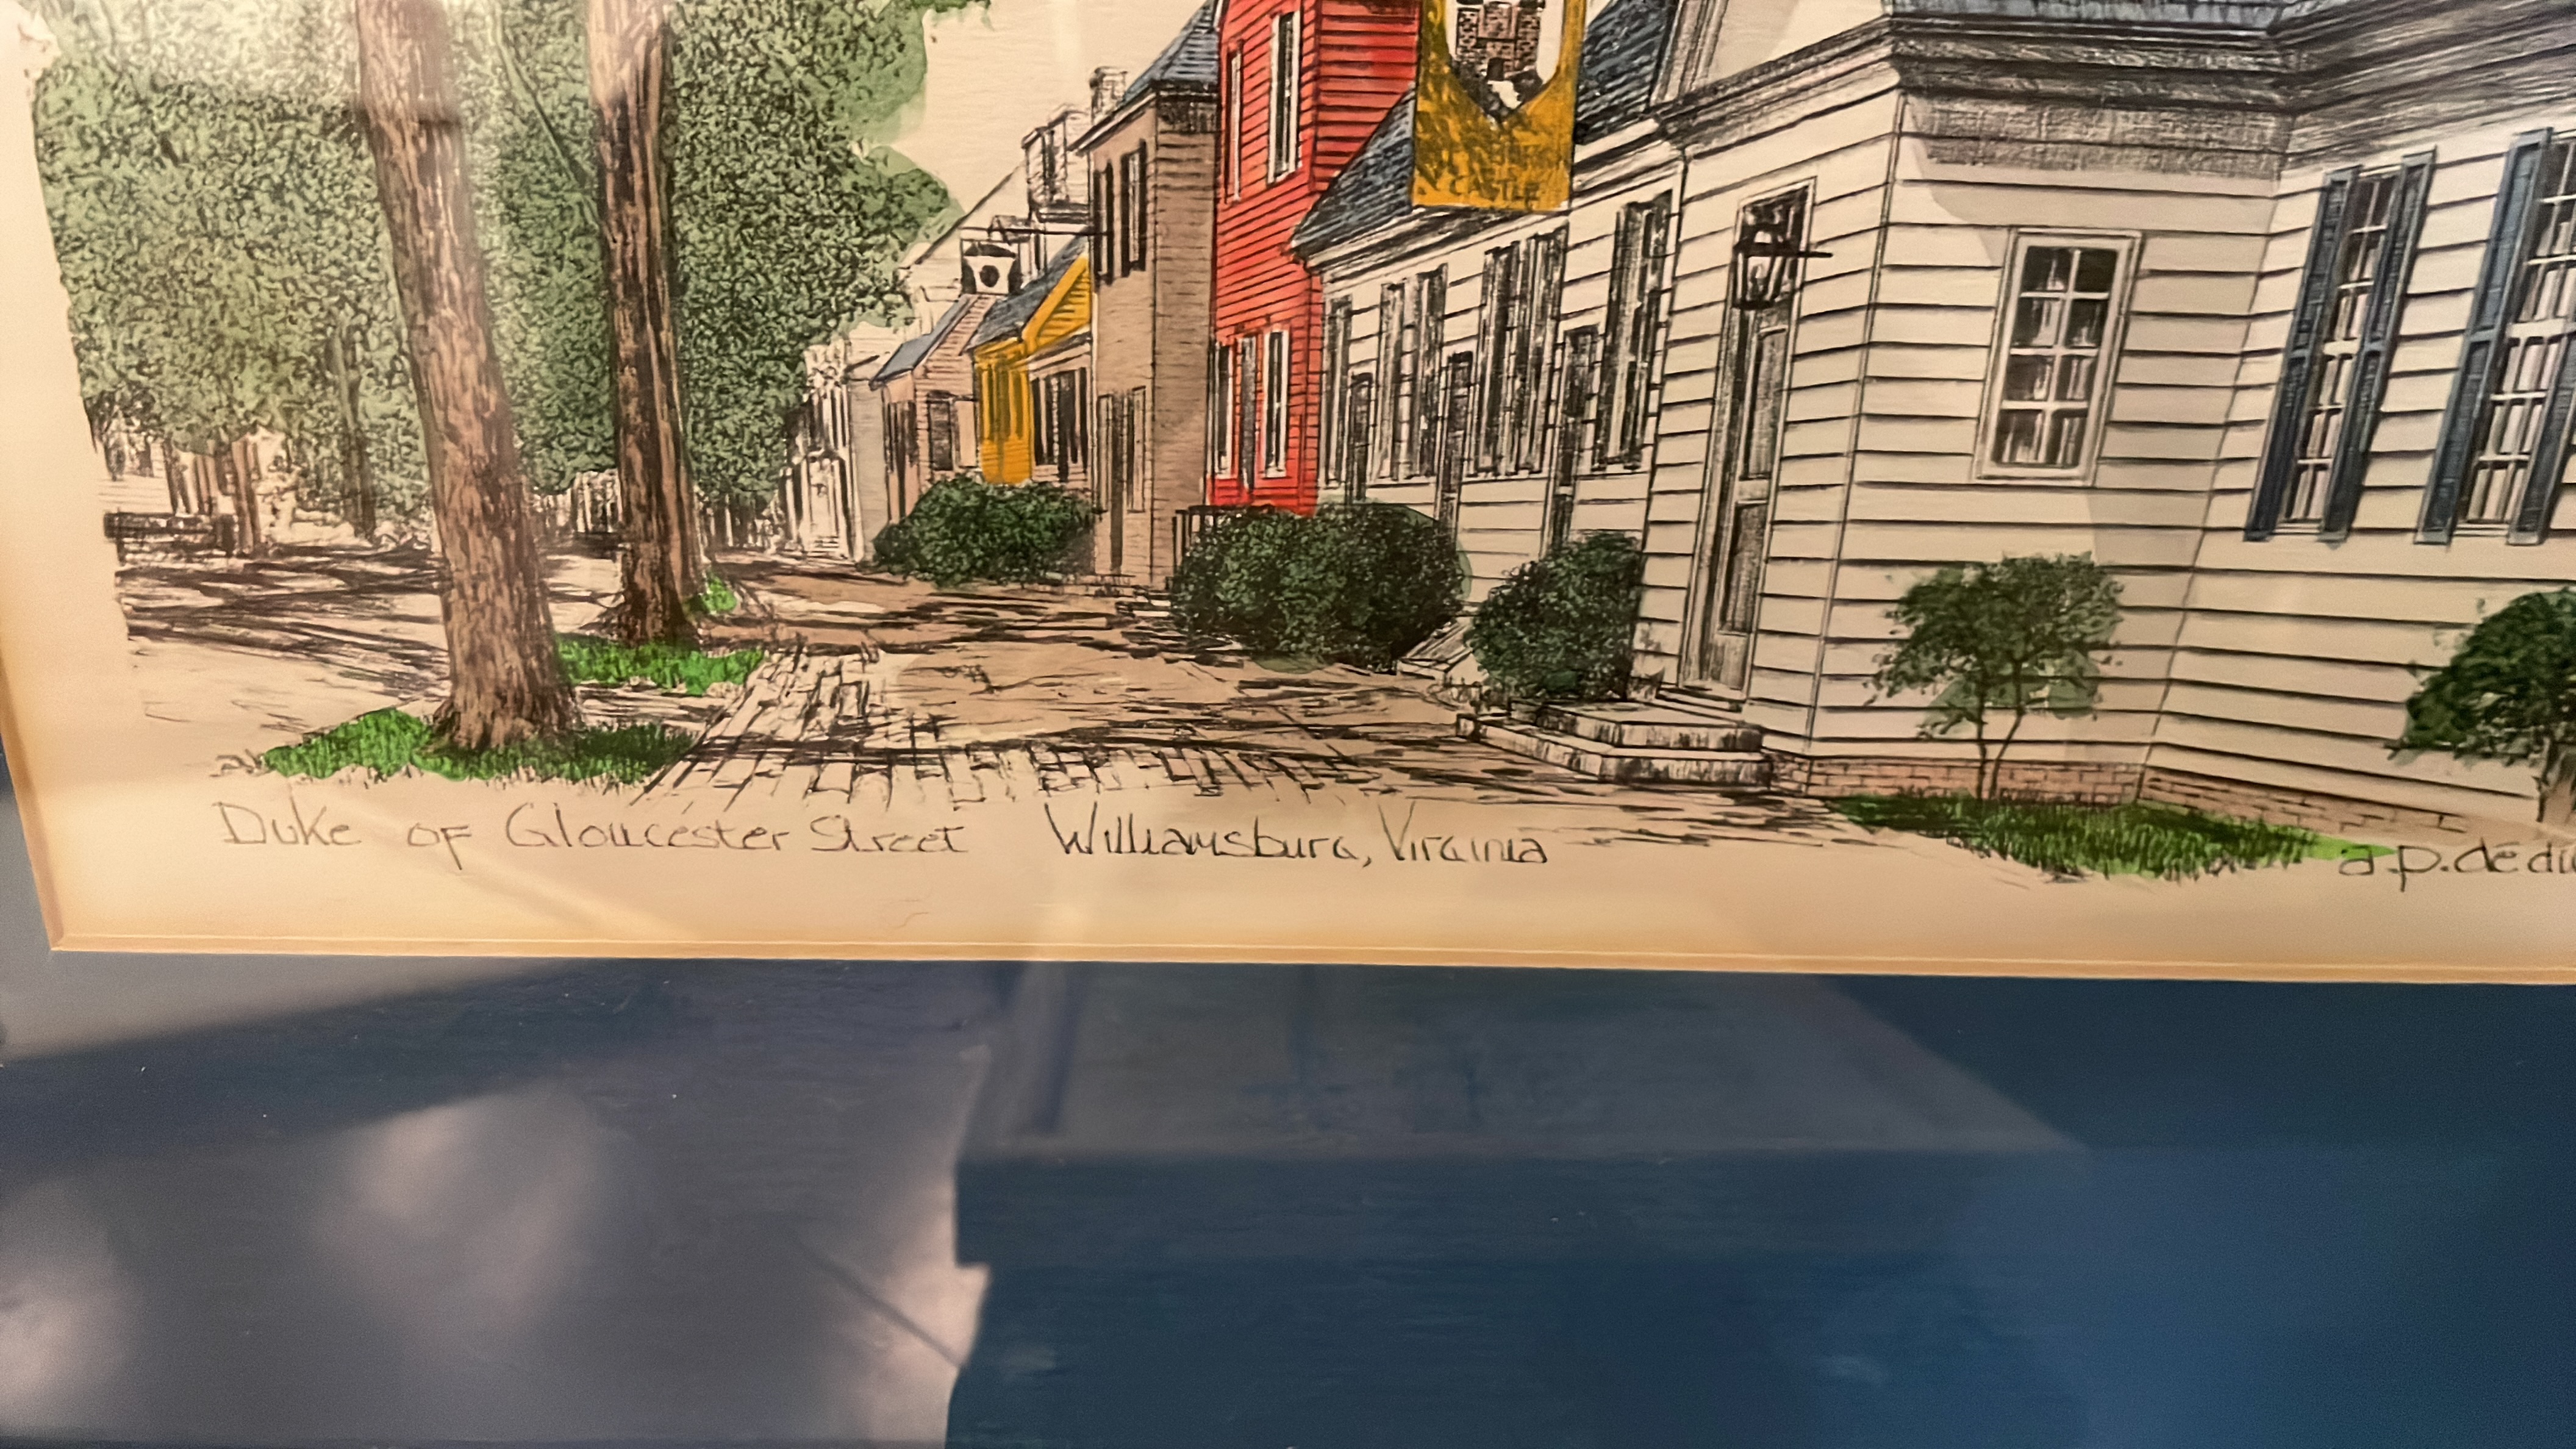 CASTLE
Duke of Gloucester Street Williamsburg, Virginia
a.p.